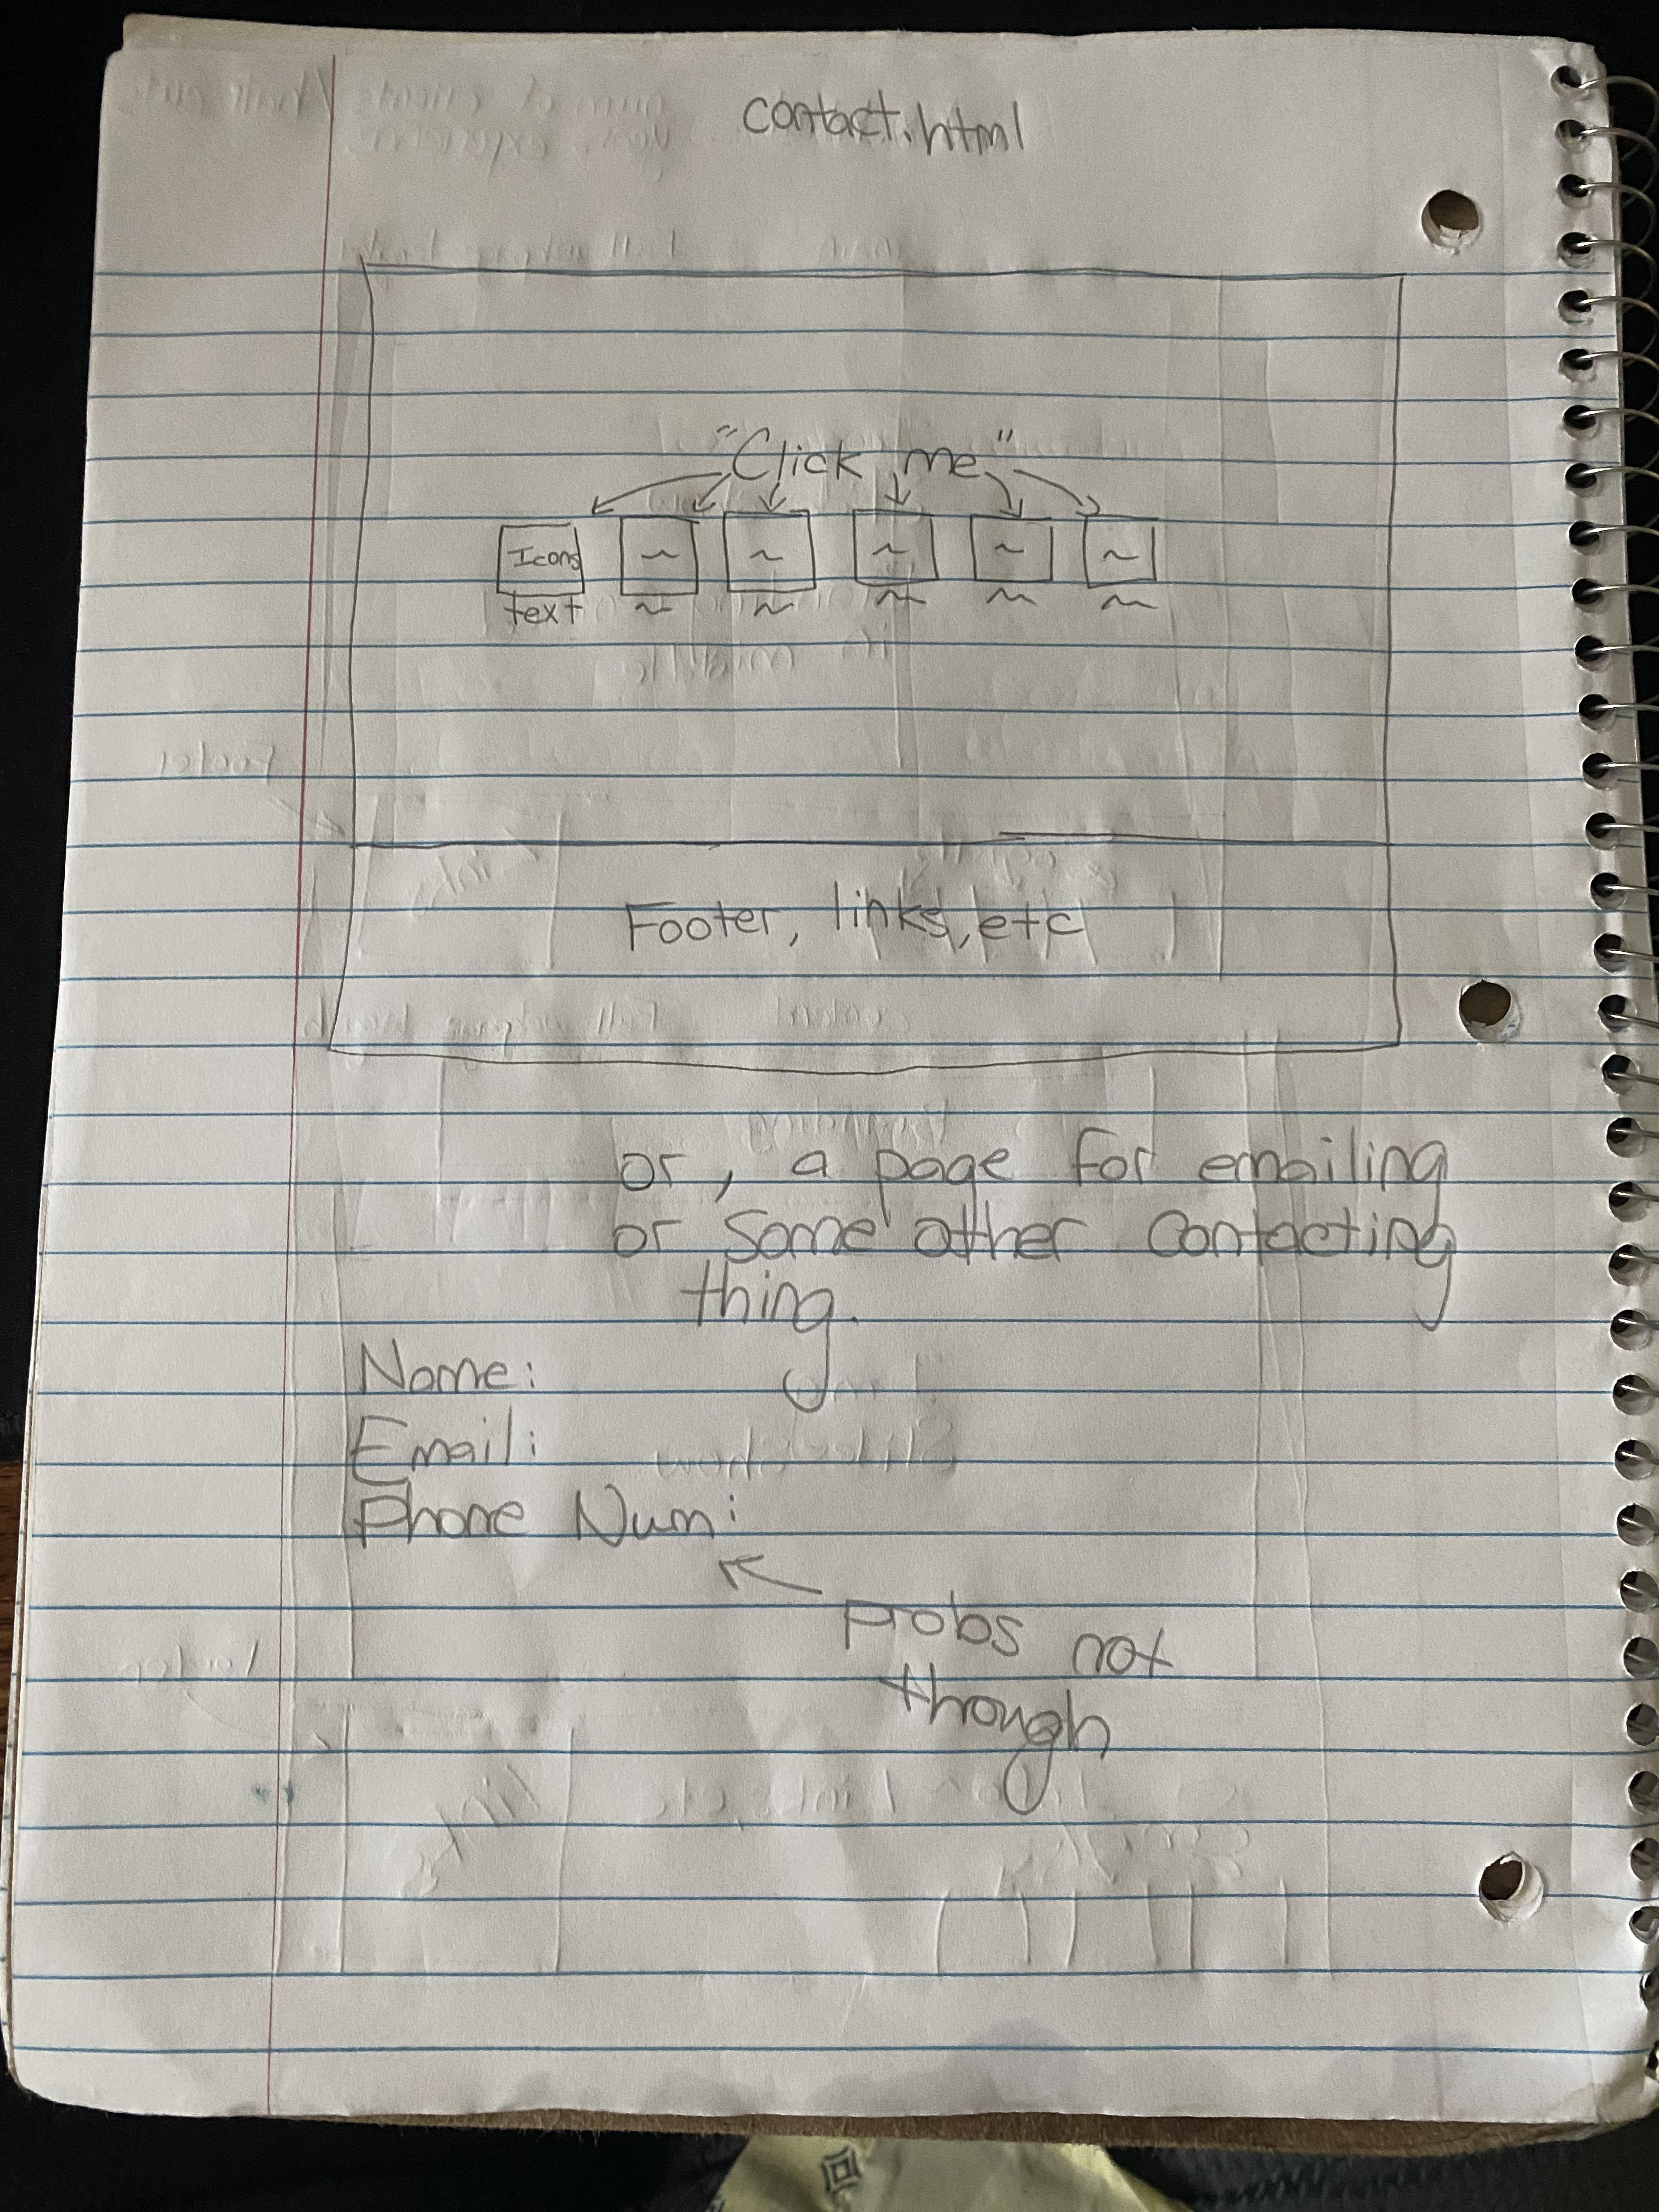 contact.html
"Click me"
Icons ~ ~ ~ ~ ~
text ~ ~ ~ ~ ~
Footer, links, etc
or, a page for emailing
or some other contacting
thing.
Name:
Email:
Phone Num:
Probs not
though